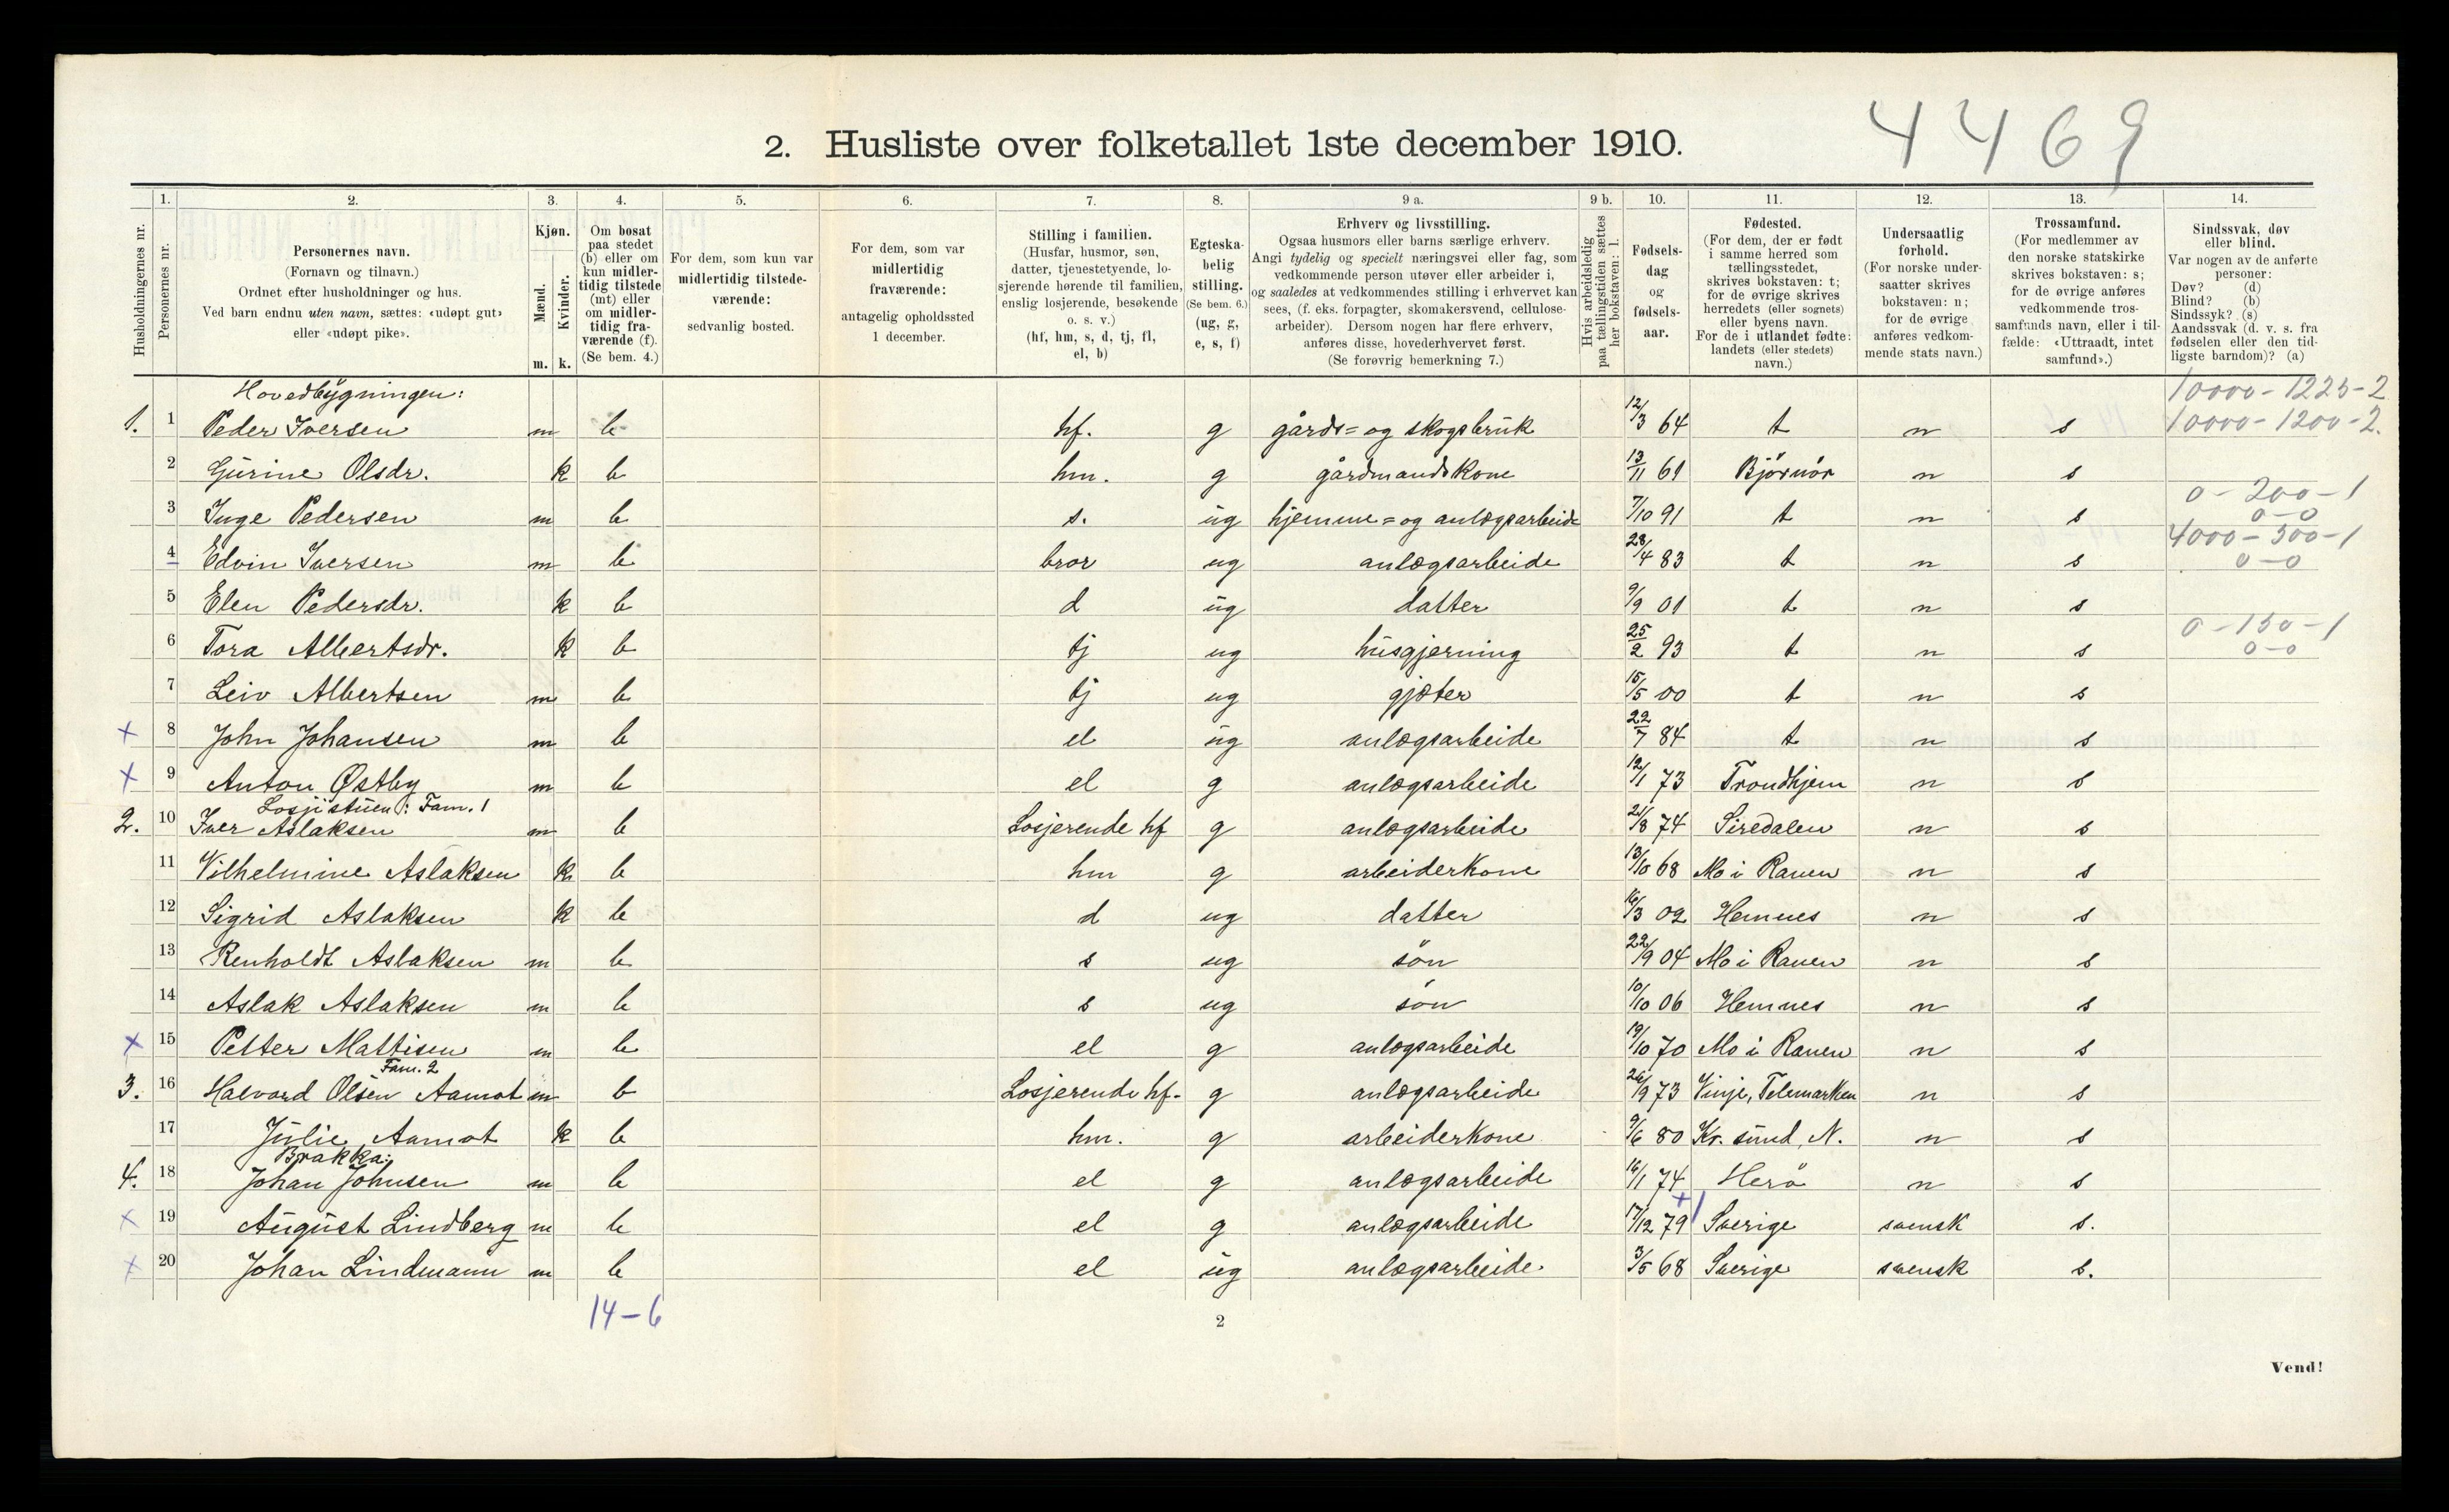 4469
2. Husliste over folketallet 1ste december 1910.
Husholdningernes nr.
1. Personernes nr.
2. Personernes navn. (Fornavn og tilnavn.) Ordnet efter husholdninger og hus. Ved barn endnu uten navn, sættes: «udøpt gut» eller «udøpt pike».
3. Kjøn. Mænd. m. Kvinder. k.
4. Om bosat paa stedet (b) eller om kun midlertidig tilstede (mt) eller om midlertidig fraværende (f). (Se bem. 4.)
5. For dem, som kun var midlertidig tilstedeværende: sedvanlig bosted.
6. For dem, som var midlertidig fraværende: antagelig opholdssted 1 december.
7. Stilling i familien. (Husfar, husmor, søn, datter, tjenestetyende, losjerende hørende til familien, enslig losjerende, besøkende o. s. v.) (hf, hm, s, d, tj, fl, el, b)
8. Egteskabelig stilling. (Se bem. 6.) (ug, g, e, s, f)
9 a. Erhverv og livsstilling. Ogsaa husmors eller barns særlige erhverv. Angi tydelig og specielt næringsvei eller fag, som vedkommende person utøver eller arbeider i, og saaledes at vedkommendes stilling i erhvervet kan sees, (f. eks. forpagter, skomakersvend, cellulosearbeider). Dersom nogen har flere erhverv, anføres disse, hovederhvervet først. (Se forøvrig bemerkning 7.)
9 b. Hvis arbeidsledig paa tællingstiden sættes her bokstaven: l.
10. Fødselsdag og fødselsaar.
11. Fødested. (For dem, der er født i samme herred som tællingsstedet, skrives bokstaven: t; for de øvrige skrives herredets (eller sognets) eller byens navn. For de i utlandet fødte: landets (eller stedets) navn.)
12. Undersaatlig forhold. (For norske undersaatter skrives bokstaven: n; for de øvrige anføres vedkommende stats navn.)
13. Trossamfund. (For medlemmer av den norske statskirke skrives bokstaven: s; for de øvrige anføres vedkommende trossamfunds navn, eller i tilfælde: «Uttraadt, intet samfund».)
14. Sindssvak, døv eller blind. Var nogen av de anførte personer: Døv? (d) Blind? (b) Sindssyk? (s) Aandssvak (d. v. s. fra fødselen eller den tidligste barndom)? (a)
Hovedbygningen: 10000-1225-2
1. 1 Peder Iversen m b hf. g gårds= og skogsbruk 12/3 64 t n s 10000-1200-2.
2 Gurine Olsdr. k b hm. g gårdmandskone 13/11 61 Björnör n s
3 Inge Pedersen m b s. ug hjemme= og anlægsarbeide 7/10 91 t n s 0-200-1 0-0
4 Edvin Iversen m b bror ug anlægsarbeide 28/4 83 t n s 4000-500-1 0-0
5 Elen Pedersdr. k b d ug datter 9/9 01 t n s
6 Tora Albertsdr. k b tj ug husgjerning 25/2 93 t n s 0-150-1 0-0
7 Leiv Albertsen m b tj ug gjæter 15/5 00 t n s
+ 8 John Johansen m b el ug anlægsarbeide 22/7 84 t n s
+ 9 Anton Østby m b el g anlægsarbeide 12/1 73 Trondhjem n s
Losjistuen: Fam. 1
2. 10 Iver Aslaksen m b Losjerende hf g anlægsarbeide 21/8 74 Siredalen n s
11 Vilhelmine Aslaksen k b hm g arbeiderkone 13/10 68 Mo i Ranen n s
12 Sigrid Aslaksen k b d ug datter 16/3 02 Hemnes n s
13 Renholdt Aslaksen m b s ug søn 22/9 04 Mo i Ranen n s
14 Aslak Aslaksen m b s ug søn 10/10 06 Hemnes n s
x 15 Petter Mattisen m b el g anlægsarbeide 19/10 70 Mo i Ranen n s
Fam. 2
3. 16 Halvord Olsen Aamot m b Losjerende hf. g anlægsarbeide 26/9 73 Vinje, Telemarken n s
17 Julie Aamot k b hm. g arbeiderkone 9/6 80 Kr. sund, N. n s
Brakka:
4. 18 Johan Johnsen m b el g anlægsarbeide 16/1 74 Herö n s
x 19 August Lindberg m b el g anlægsarbeide 17/12 79 Sverige svensk s.
x 20 Johan Lindmann m b el ug anlægsarbeide 3/5 68 Sverige svensk s.
14-6
2
Vend!